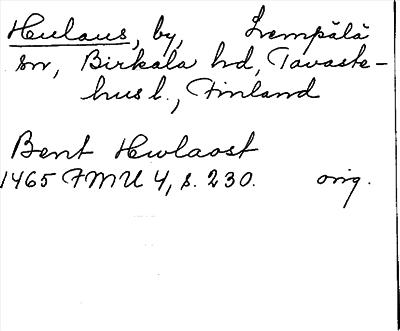 Heulaus, by, Lempälä
sn, Birkala hd, Tavaste-
hus l., Finland
Bent Hwlaost
1465 FMU 4, s. 230. orig.